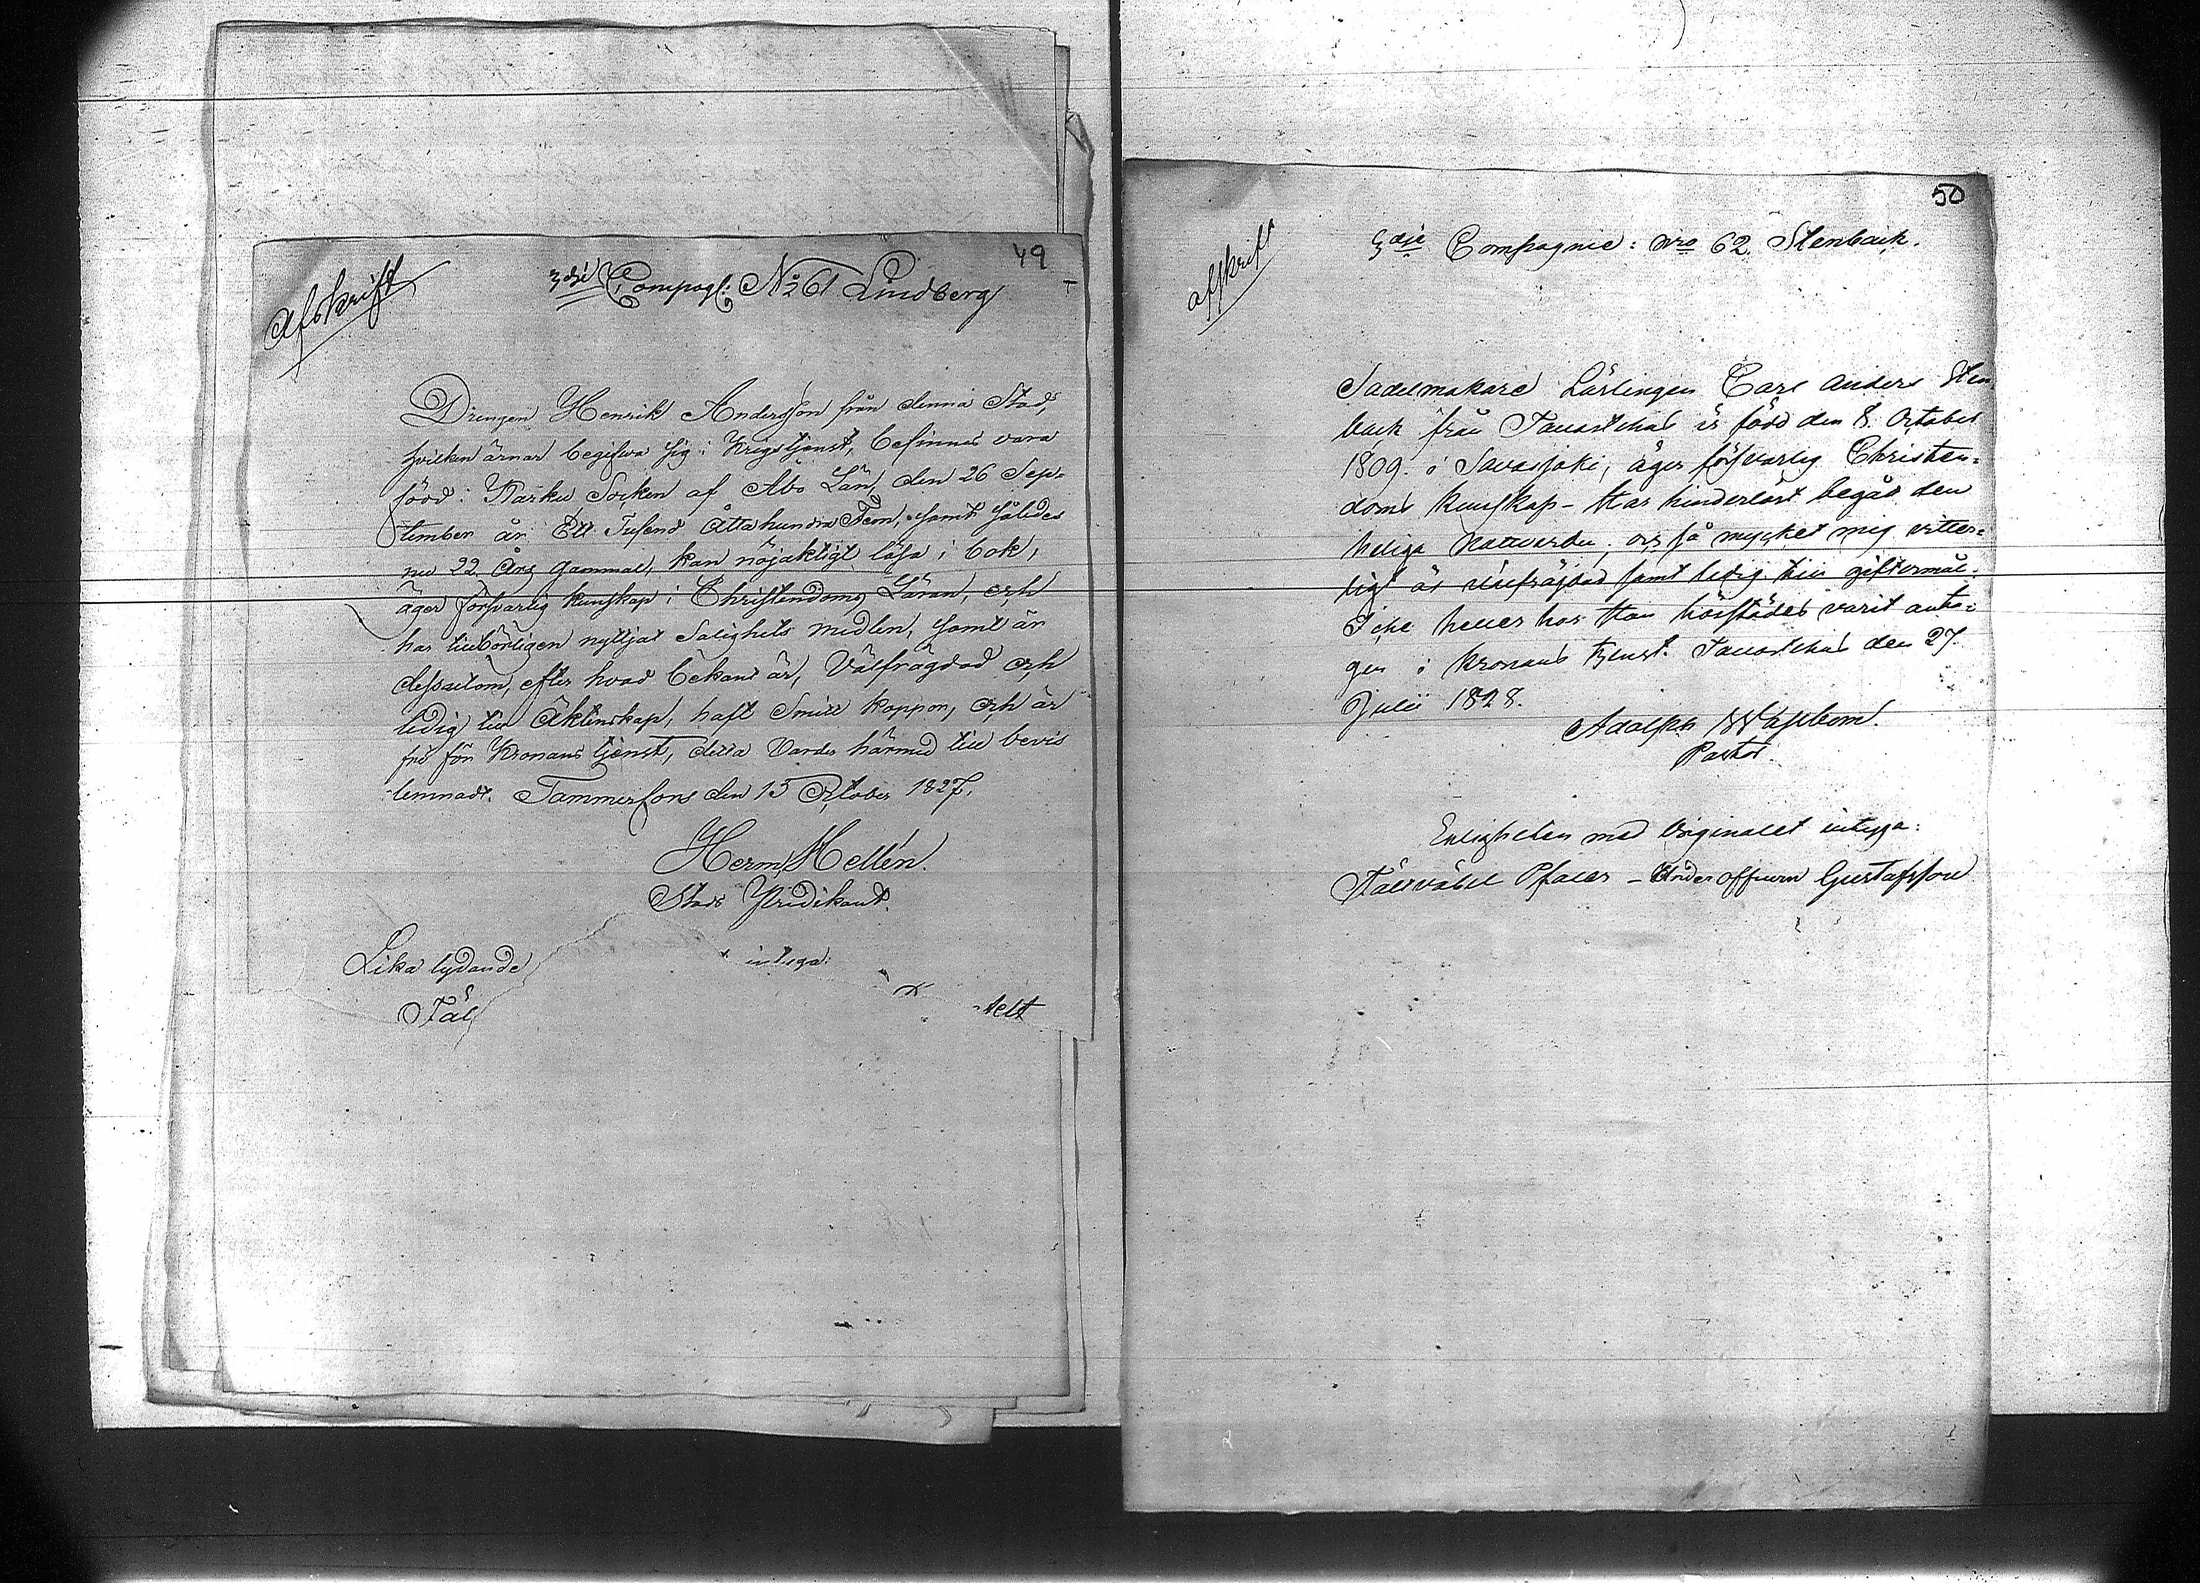 49
Afskrift
3dje Compagt: No 61 Lindberg
Drengen Henrik Andersson från denna Stad,
hvilken ärnar begifva sig i Krigstjenst, befinnes vara
född i Karku Socken af Åbo Län, den 26 Sep-
tember år Ett Tusend Åtta hundra Fem, samt således
nu 22 Års gammal, kan nöjaktigt läsa i bok,
äger försvarlig kunskap i Christendoms Läran, och
har tillbörligen nyttjat Salighets medlen, samt är
dessutom, efter hvad bekant är, Välfrägdad och
ledig till Äktenskap, haft Smitt koppor, och är
fri för Kronans tjenst, detta Varder härmed till bevis
lemnadt. Tammerfors den 15 October 1827.
Herm. Hellén.
Stads Predikant.
Lika lydande intyga:
Fäl
50
afskrift
3dje Compagnie: Nro 62. Stenback.
Sadelmakare Lärlingen Carl Anders Sten
back från Tavastehus är född den 8. October
1809. i Savasjoki, äger försvarlig Christen-
doms kunskap - Har hinderlöst begått den
heliga Nattvarden, och så mycket mig vitter-
ligt är välfrägdad samt ledig till giftermål.
Icke heller har Han härstädes varit anta-
gen i Kronans tjenst. Tavastehus den 27.
Julii 1828.
Adolph Wahlbom.
Pastor.
Enligheten med Originalet intyga:
Fältväbel Pfaler - Underofficern Gustafsson